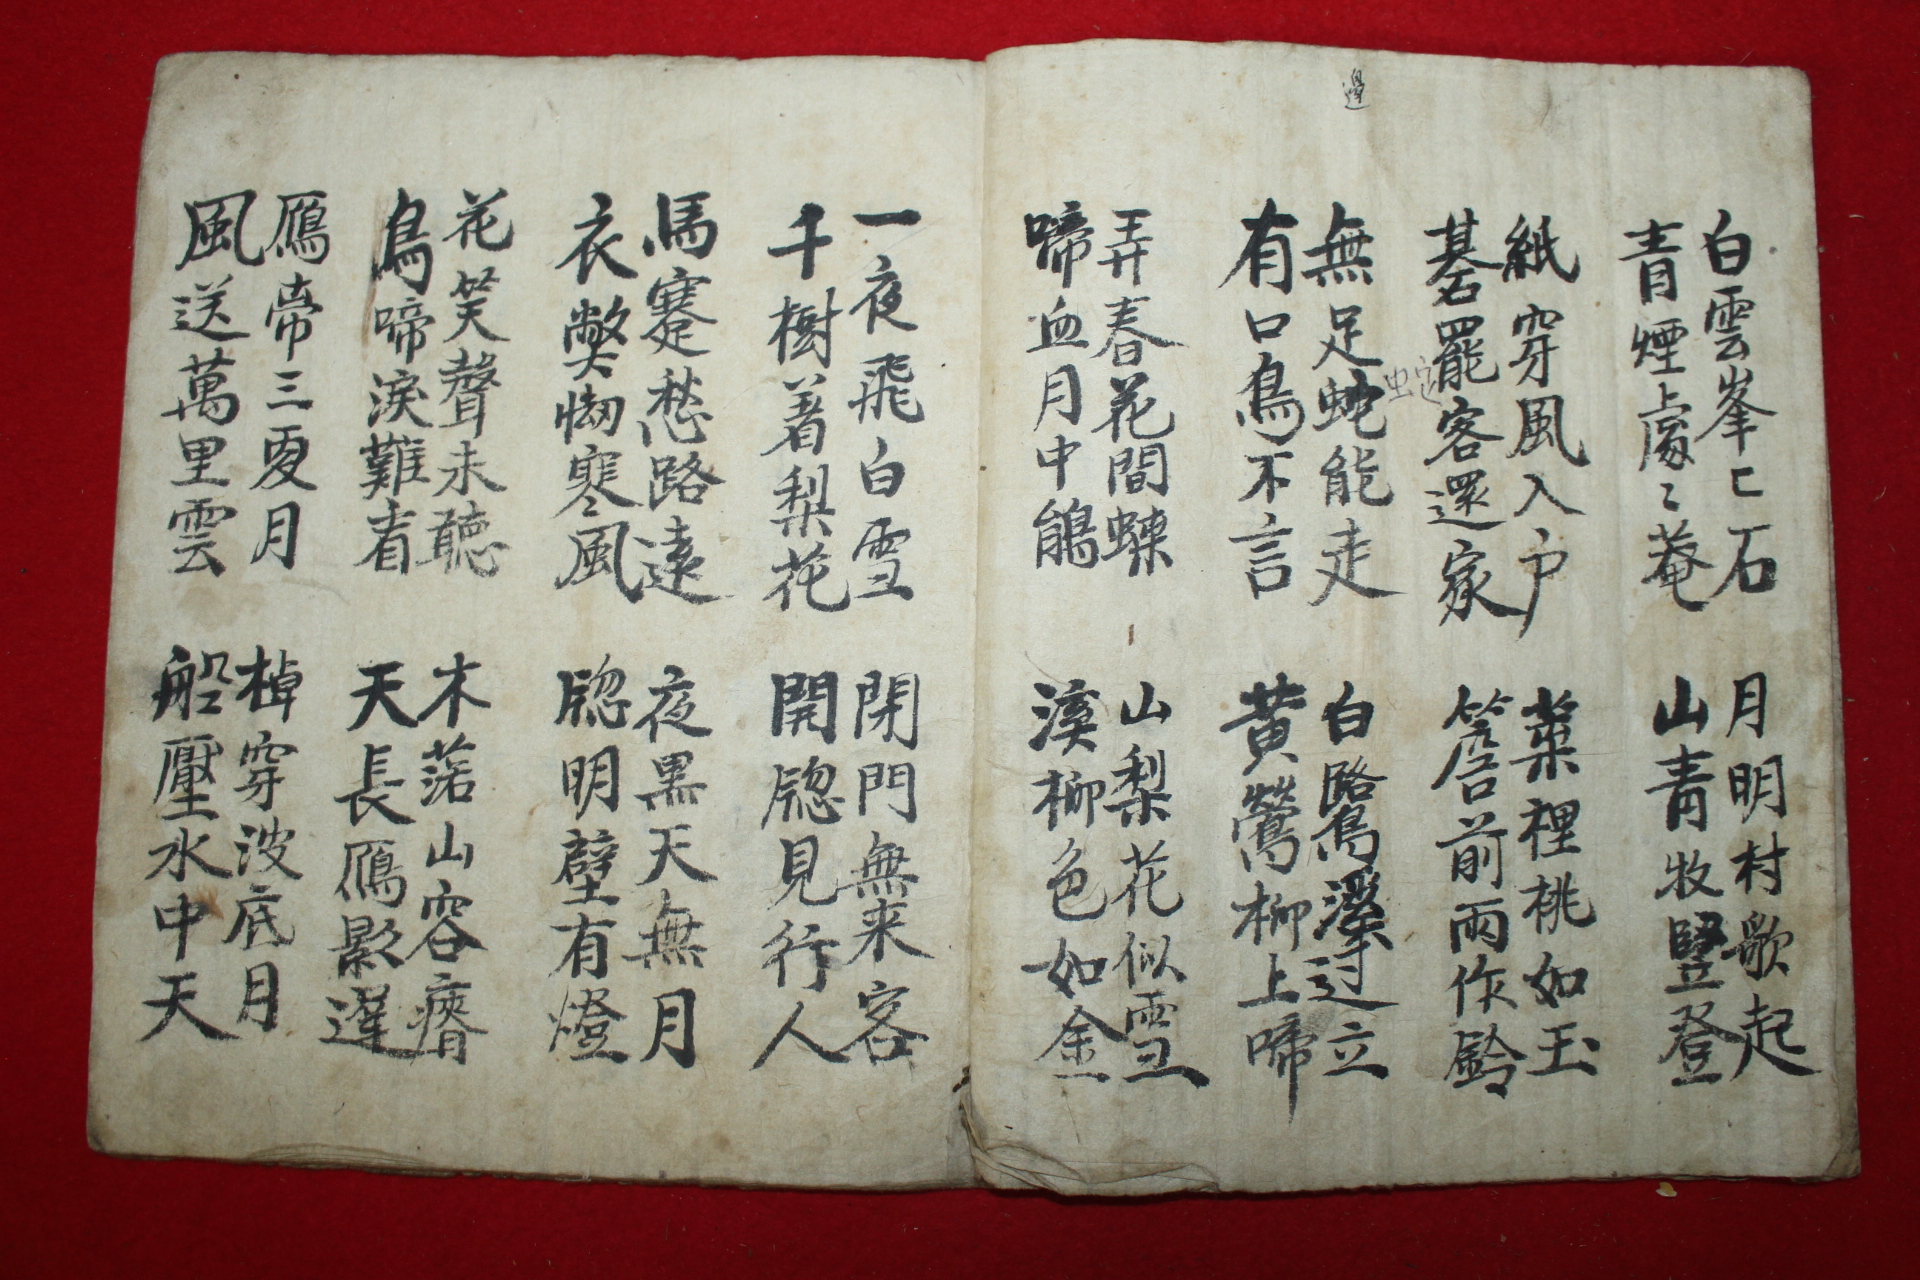 邊
白雲峯〻石
青煙處〻菴
月明村歌起
山青牧豎登
紙穿風入户
碁罷客還家
葉裡桃如玉
簷前雨作鈴
無足蛇能走
有口鳥不言
白鷺溪过立
黃鶯柳上啼
弄春花間蝶
啼血月中鵑
山梨花似雪
溪柳色如金
一夜飛白雪
千樹着梨花
閉門無来客
開牕見行人
馬蹇愁路遠
衣弊寒風
夜黑天無月
牕明壁有燈
花笑聲未聽
鳥啼淚難看
木落山容瘠
天長鴈影遲
鴈帝三更月
風送萬里雲
棹穿波底月
船壓水中天